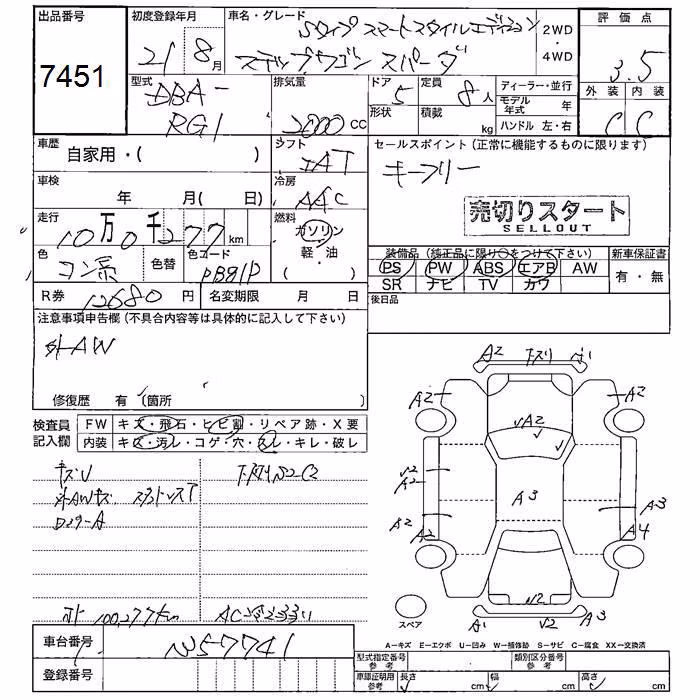 出品番号
7451
初度登録年月
21 8月
車名・グレード
Sタイプ スマートスタイルエディション
ステップワゴン スパーダ
2WD
・
4WD
評価点
3.5
外装 内装
C C
型式
DBA-
RG1
排気量
2000cc
ドア 5
形状
定員 8人
積載 kg
ディーラー・並行
モデル年式 年
ハンドル 左・右
車歴
自家用・( )
シフト
IAT
セールスポイント(正常に機能するものに限ります)
キーフリー
車検
年 月( 日)
冷房
AAC
売切りスタート
SELLOUT
走行
10万0千277km
燃料
ガソリン
・
軽・油
( )
色
色替
色コード
PB81P
装備品(純正品に限り○をつけて下さい)
新車保証書
PS PW ABS エアB AW
SR ナビ TV カワ
有・無
R券 12680円
名変期限 月 日
後日品
注意事項申告欄(不具合内容等は具体的に記入して下さい)
外AW
修復歴 有(箇所 )
検査員
記入欄
FW キズ・飛石・ヒビ割・リペア跡・X要
内装 キズ・汚レ・コゲ・穴・スレ・キレ・破レ
キズU
外AWキズ
A2 下スリ
A2 A2
A2
A2
A3
A3
A2 A2 A4
A1 A3
100,277km
スペア
A-キズ E-エクボ U-凹み W-補修跡 S-サビ C-腐食 XX-交換済
車台番号
登録番号
型式指定番号
参考
類別区分番号
参考
車庫証明用
参考
長さ cm 幅 cm 高さ cm